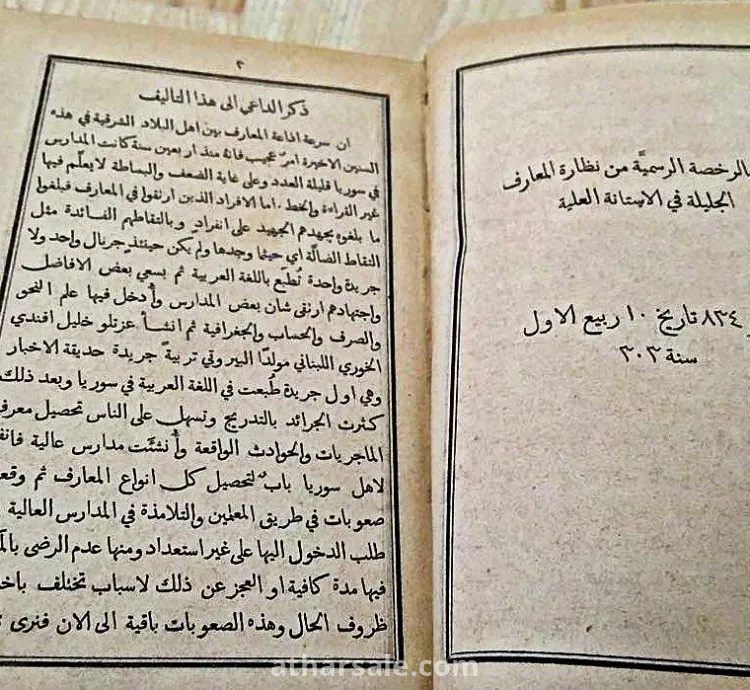 بالرخصة الرسمية من نظارة المعارف
الجليلة في الاستانة العلية
٨٣٤ تاريخ ١٠ ربيع الاول
سنة ٣٠٣
٢
ذكر الداعي الى هذا التاليف
ان سرعة اذاعة المعارف بين اهل البلاد الشرقية في هذه
السنين الاخيرة امرٌ عجيب فانهُ منذ اربعين سنة كانت المدارس
في سوريا قليلة العدد وعلى غاية الضعف والبساطة لا يعلَّم فيها
غير القراءة والخط . اما الافراد الذين ارتقوا في المعارف فبلغوا
ما بلغوه بجهدهم الجهيد على انفراد وبالتقاطهم الفائدة مثل
التقاط الضالَّة اي حيثما وجدها ولم يكن حينئذٍ جرنال واحد ولا
جريدة واحدة تُطبَع باللغة العربية ثم بسعي بعض الافاضل
واجتهادهم ارتقى شان بعض المدارس وأُدخل فيها علم النحو
والصرف والحساب والجغرافية ثم انشأ عزتلو خليل افندي
الخوري اللبناني مولدًا البيروتي تربيةً جريدة حديقة الاخبار
وهي اول جريدة طُبعت في اللغة العربية في سوريا وبعد ذلك
كثرت الجرائد بالتدريج وتسهل على الناس تحصيل
الماجريات والحوادث الواقعة وأُنشئَت مدارس عالية
لاهل سوريا بابٌ لتحصيل كل انواع المعارف ثم
صعوبات في طريق المعلمين والتلامذة في المدارس العالية
طلب الدخول اليها على غير استعداد ومنها عدم الرضى
فيها مدة كافية او العجز عن ذلك لاسباب تختلف
ظروف الحال وهذه الصعوبات باقية الى الان فنرى
atharsale.com